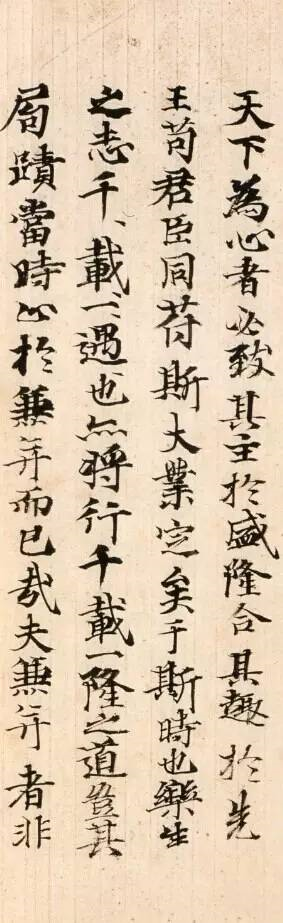 天下為心者必致其主於盛隆合其趣於先
王苟君臣同苻斯大業定矣于斯時也樂生
之志千、載一、遇也亦將行千載一隆之道豈其
局蹟當時止於兼并而已哉夫兼并者非